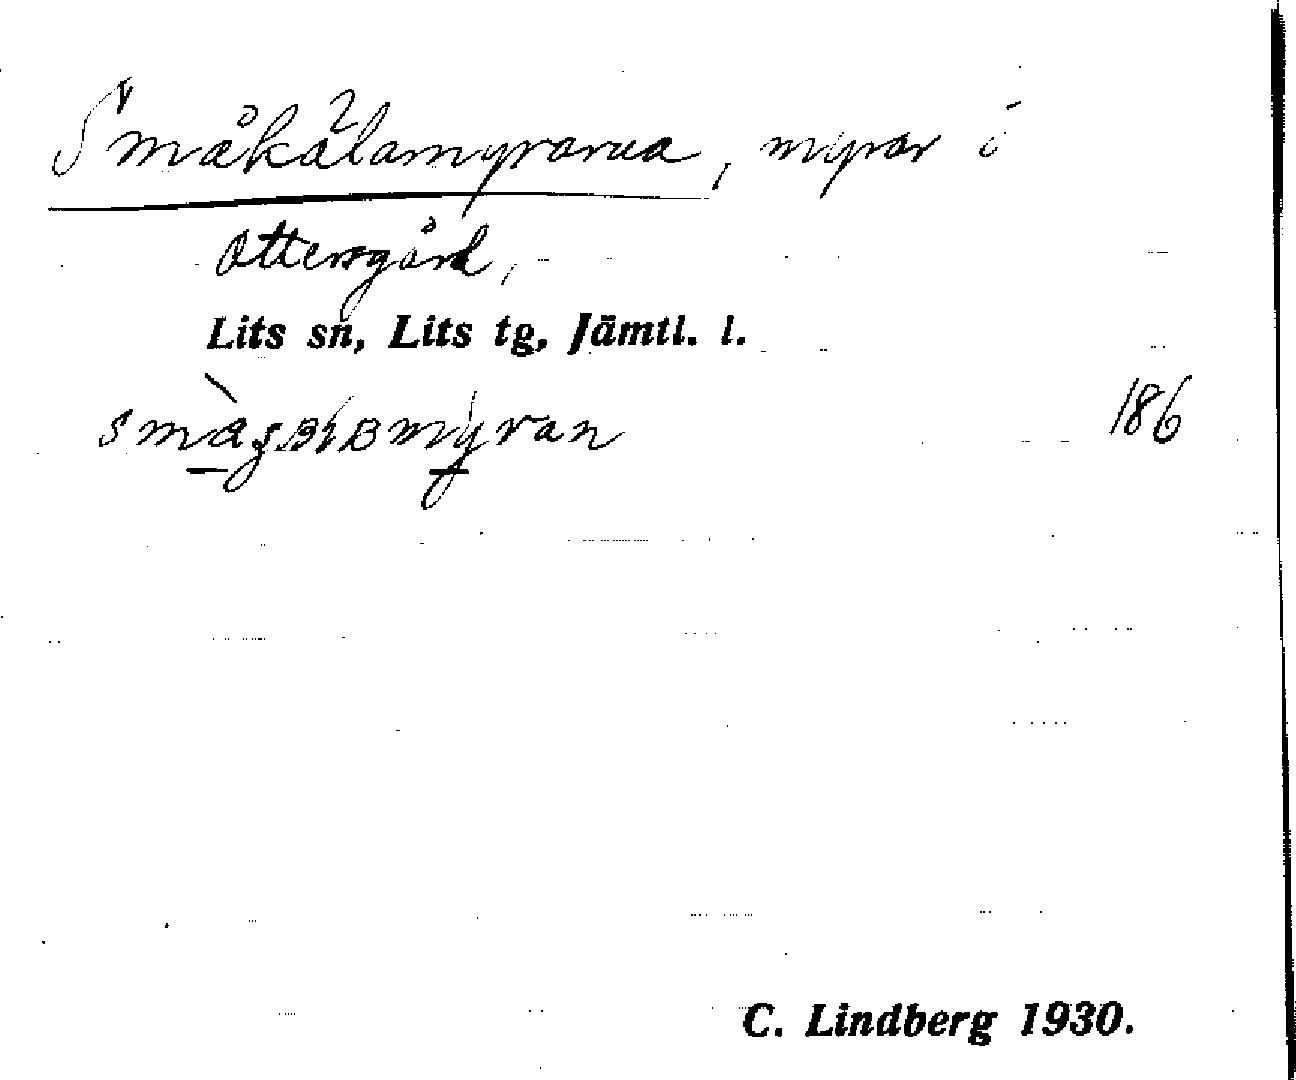 Småkålamyrarna, myrar i
Ottersgård,
Lits sn, Lits tg, Jämtl. l.
186
C. Lindberg 1930.